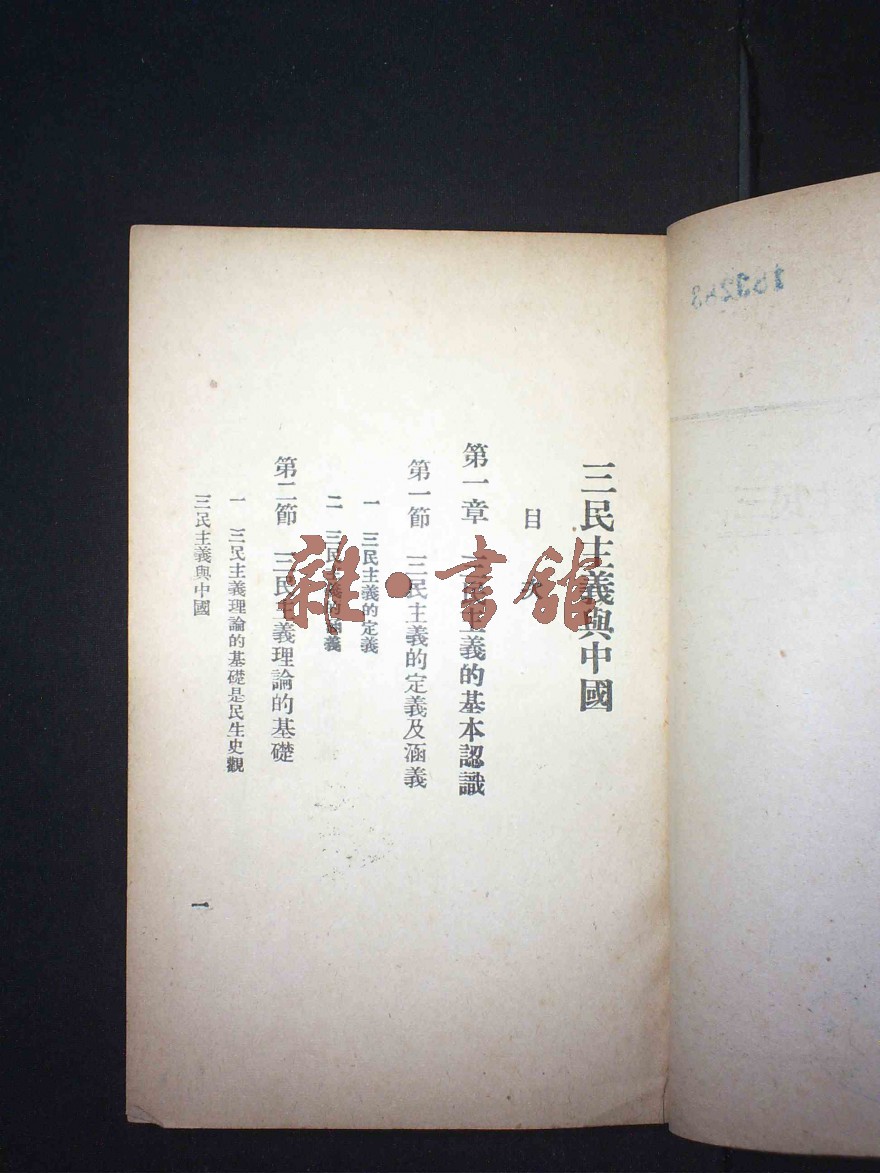 三民主義與中國
目次
第一章 三民主義的基本認識
第一節 三民主義的定義及涵義
一 三民主義的定義
二 三民主義的涵義
第二節 三民主義理論的基礎
一 三民主義理論的基礎是民生史觀
三民主義與中國
一
雜·書館